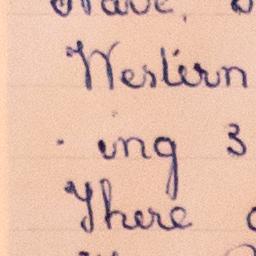 Western
ing 3
There